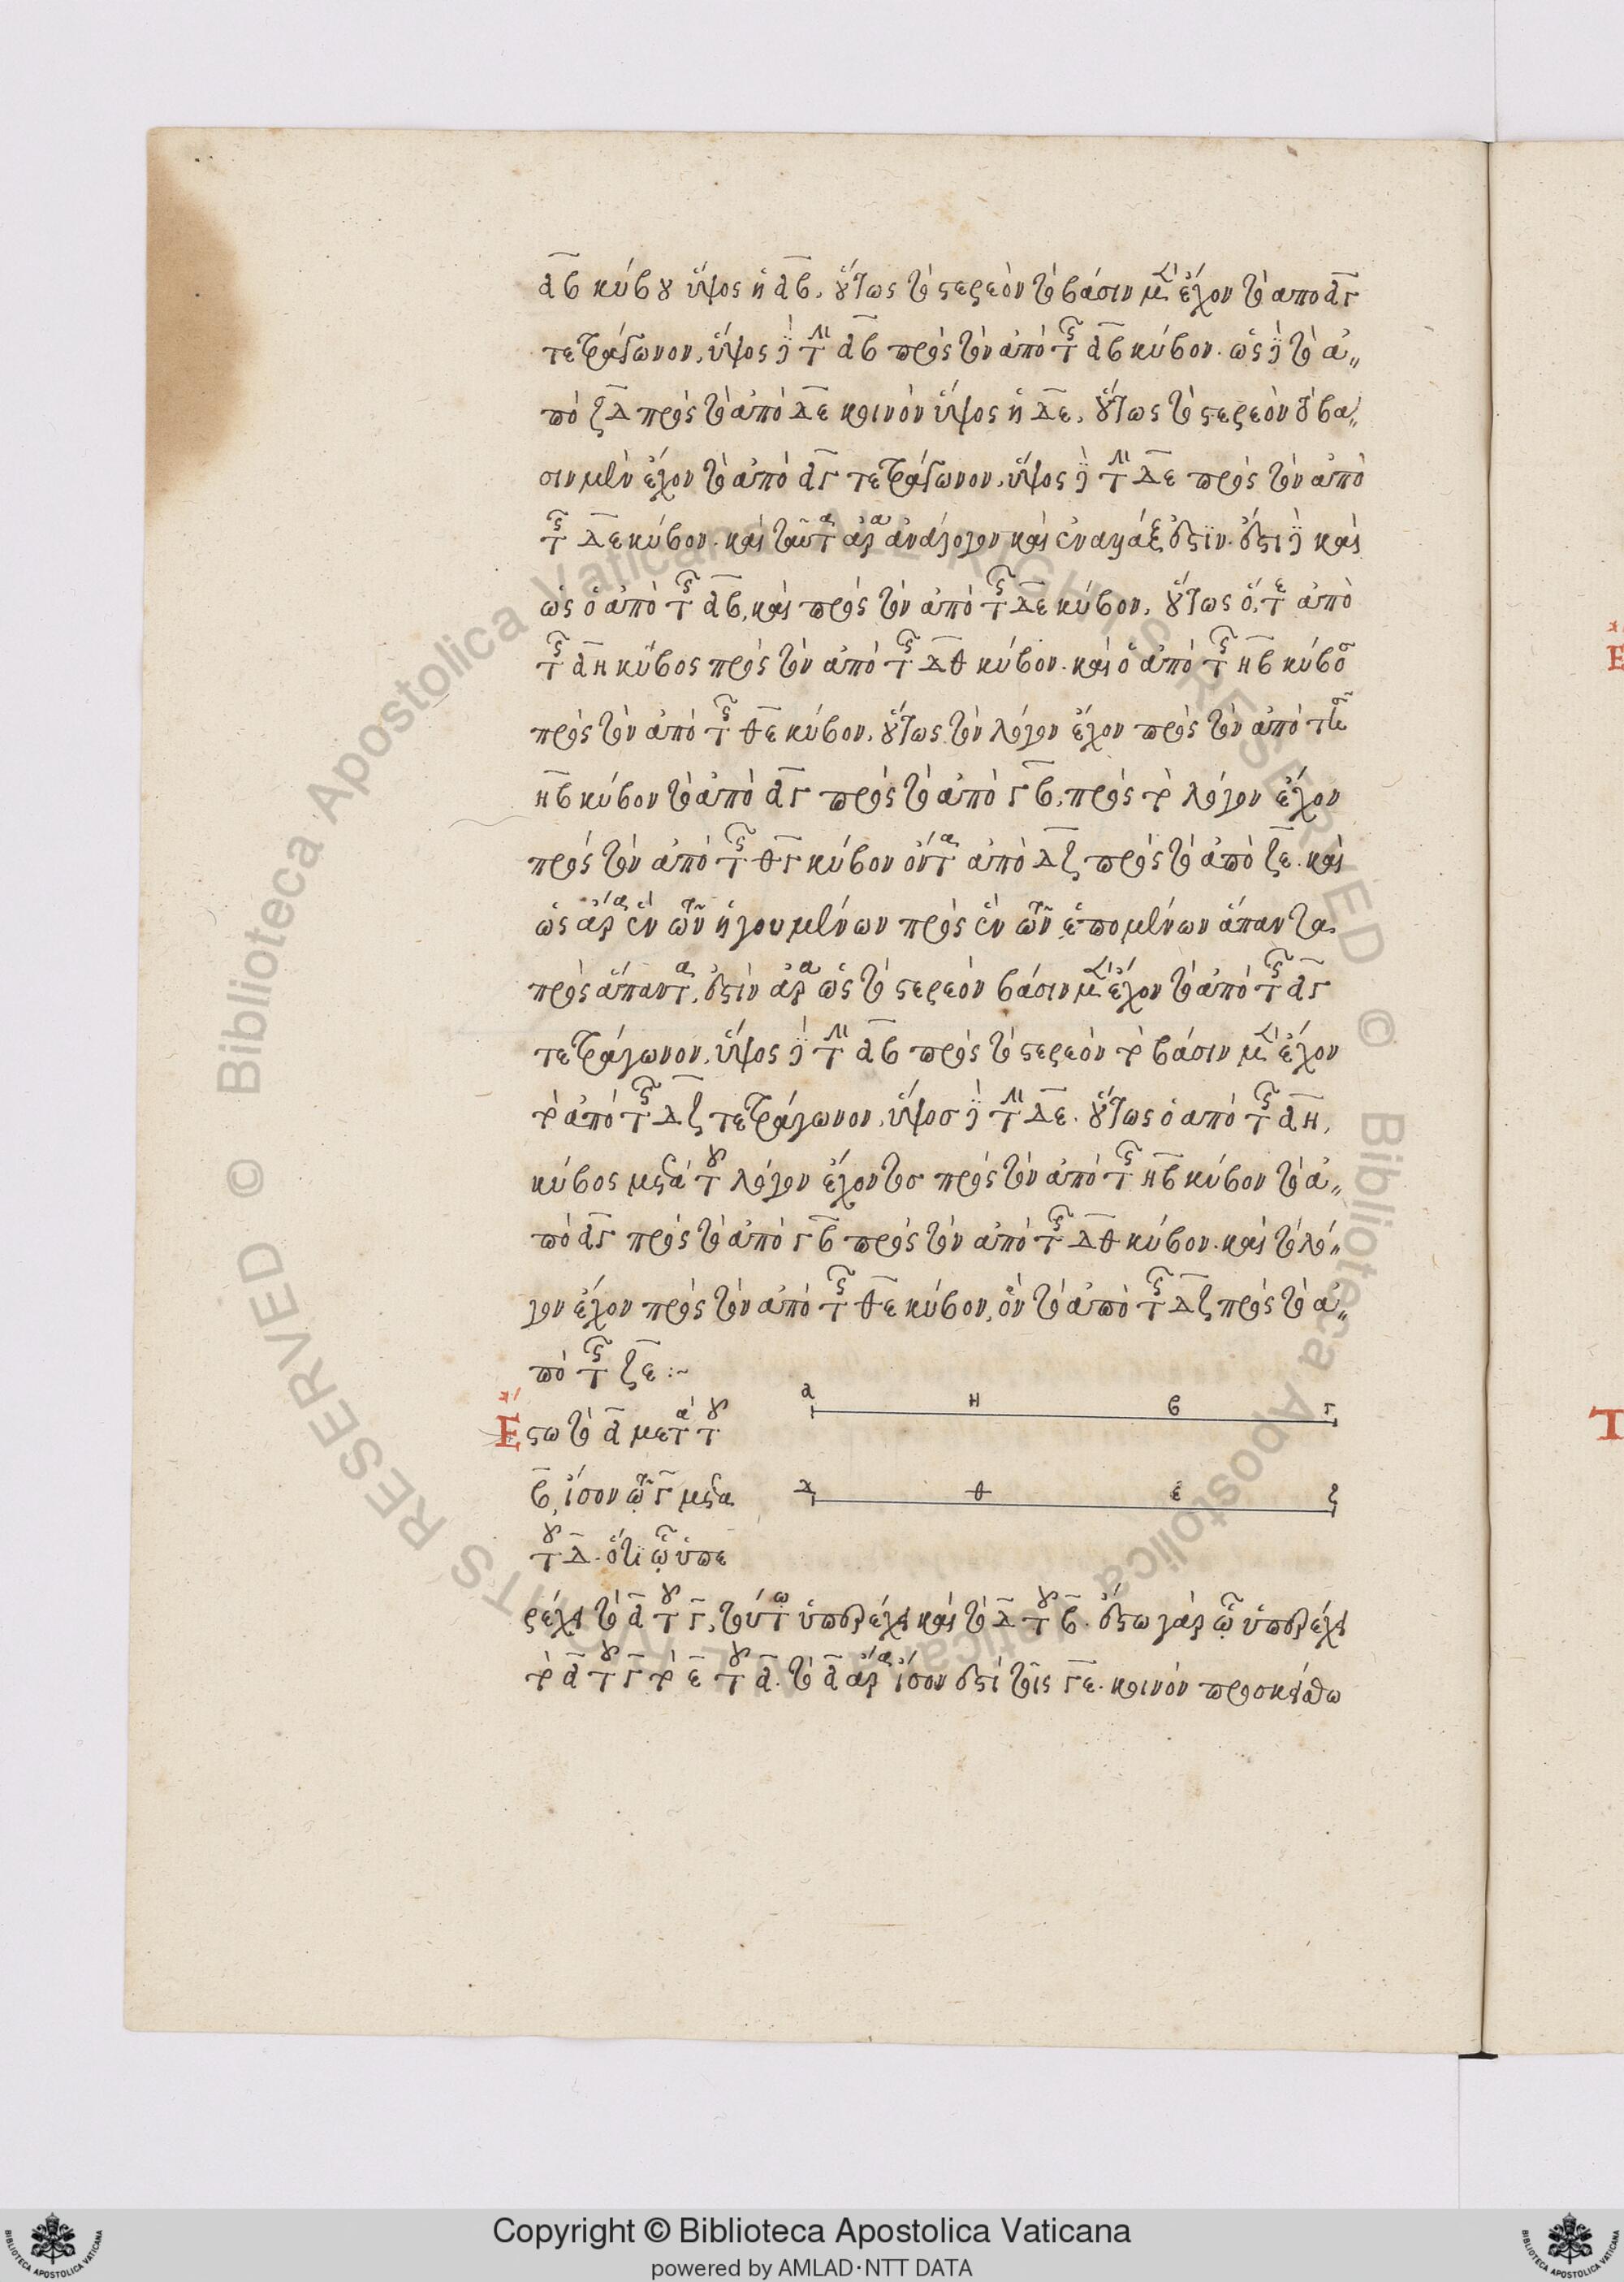 α̅β̅ κύβου ὕψος ἡ α̅β̅, οὕτως τὸ στερεὸν τὸ βάσιν μὲν ἔχον τὸ απο α̅γ̅
τετράγωνον, ὕψος δὲ τὴν α̅β̅ πρὸς τὸν ἀπὸ τῆς α̅β̅ κύβον. ὡς δὲ τὸ ἀ
πὸ ζ̅δ̅ πρὸς τὸ ἀπὸ δ̅ε̅ κοινὸν ὕψος ἡ δ̅ε̅, οὕτως τὸ στερεὸν τὸ βά
σιν μὲν ἔχον τὸ ἀπὸ α̅γ̅ τετράγωνον, ὕψος δὲ τὴν δ̅ε̅ πρὸς τὸν ἀπὸ
τῆς δ̅ε̅ κύβον. καὶ ταῦτα ἄρα ἀνάλογον καὶ ἐναλλάξ ἐστιν. ἔστι δὲ καὶ
ὡς ὁ ἀπὸ τῆς α̅β̅, καὶ πρὸς τὸν ἀπὸ τῆς δ̅ε̅ κύβον, οὕτως ὅ, τε ἀπὸ
τῆς α̅η̅ κύβος πρὸς τὸν ἀπὸ τῆς δ̅θ̅ κύβον. καὶ ὁ ἀπὸ τῆς η̅β̅ κύβος
πρὸς τὸν ἀπὸ τῆς θ̅ε̅ κύβον, οὕτως τὸν λόγον ἔχον πρὸς τὸν ἀπὸ τῆς
η̅β̅ κύβον τὸ ἀπὸ α̅γ̅ πρὸς τὸ ἀπὸ γ̅β̅, πρὸς τὸ λόγον ἔχον
πρὸς τὸν ἀπὸ τῆς θ̅γ̅ κύβον ὄντα ἀπὸ δ̅ζ̅ πρὸς τὸ ἀπὸ ζ̅ε̅. καὶ
ὡς ἄρα ἓν τῶν ἡγουμένων πρὸς ἓν τῶν ἑπομένων ἅπαντα
πρὸς ἅπαντα, ἐστὶν ἄρα ὡς τὸ στερεὸν βάσιν μὲν ἔχον τὸ ἀπὸ τῆς α̅γ̅
τετράγωνον, ὕψος δὲ τὴν α̅β̅ πρὸς τὸ στερεὸν τὸ βάσιν μὲν ἔχον
τὸ ἀπὸ τῆς δ̅ζ̅ τετράγωνον, ὕψος δὲ τὴν δ̅ε̅. οὕτως ὁ απὸ τῆς α̅η̅,
κύβος μετὰ τοῦ λόγον ἔχοντος πρὸς τὸν ἀπὸ τῆς η̅β̅ κύβον τὸ ἀ
πὸ α̅γ̅ πρὸς τὸ ἀπὸ γ̅β̅ πρὸς τὸν ἀπὸ τῆς δ̅θ̅ κύβον. καὶ τὸ λό
γον ἔχον πρὸς τὸν ἀπὸ τῆς θ̅ε̅ κύβον, ὃν τὸ ἀπὸ τῆς δ̅ζ̅ πρὸς τὸ ἀ
πὸ τῆς ζ̅ε̅ :~
α η β γ
Ἔστω τὸ α̅ μετὰ τοῦ
β̅, ἴσον τῷ γ̅ μετὰ
δ θ ε ζ
τοῦ δ̅. ὅτι ᾧ ὑπε
ρέχει τὸ α̅ τοῦ γ̅, τούτω ὑπερέχει καὶ τὸ δ̅ τοῦ β̅. ἔστω γὰρ ᾧ ὑπερέχει
τὸ α̅ τοῦ γ̅ τὸ ε̅ τοῦ α̅. τὸ α̅ ἄρα ἴσον ἐστὶ τοῖς γ̅ε̅. κοινὸν προσκείσθω
Copyright © Biblioteca Apostolica Vaticana
powered by AMLAD·NTT DATA